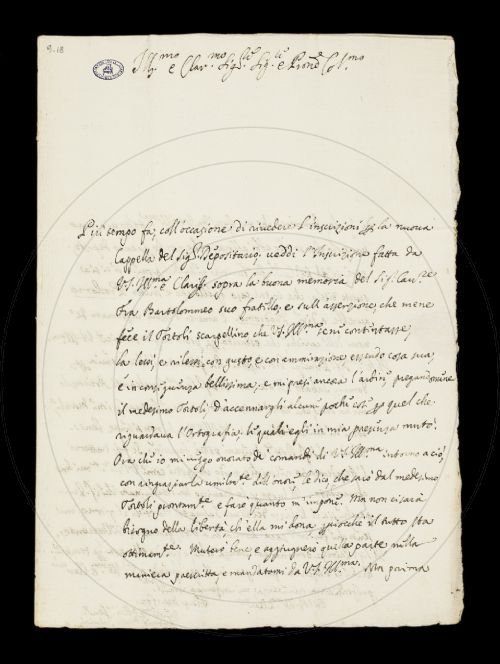 9.18
Ill.mo e Clar.mo Sig.re Sig.re e Prone Col.mo
Più tempo fa, coll'occasione di rivedere l'inscrizioni per la nuova
Cappella del Sig.r Depositario, veddi l'Inscrizione fatta da
V.S. Ill.ma e Clariss.a sopra la buona memoria del Sig. Cav.re
Fra Bartolommeo suo fratello, e sull'asserzione, che mene
fece il Tortoli scarpellino che V.S. Ill.ma seni contentasse,
la lessi, e rilessi con gusto, e con ammirazione essendo cosa sua,
e in conseguenza bellissima; e mi presi ancora l'ardire pregandomene
il medesimo Tortoli, d'accennargli alcune poche cose per quel che
riguardava l'Ortografia, le quali egli in mia presenza mutò.
Ora che io mi veggo onorato de' comandi di V.S. Ill.ma intorno a ciò,
con ringraziarla umilm.te dell'onore le dico, che sarò dal medesimo
Tortoli prontam.te e farò quanto m'impone. Ma non ci sarà
bisogno della libertà ch'ella mi dona, perchè il tutto sta
ottimam.te. Muterò bene, e aggiugnerò quella parte nella
maniera prescritta e mandatami da V.S. Ill.ma. Ma prima